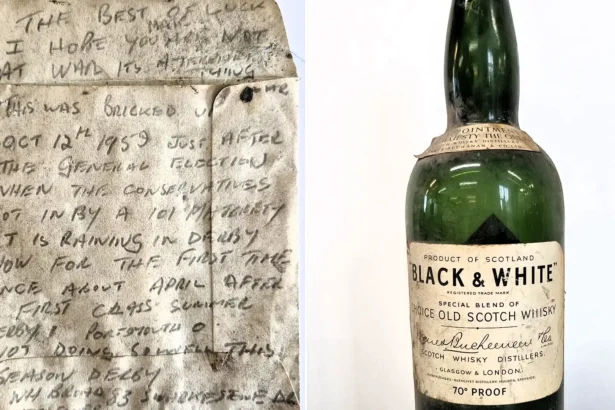 THE BEST OF LUCK
I HOPE YOU ARE NOT
AT WAR ITS A TERRIBLE
THING
WAR
THIS WAS BRICKED U
OCT 12TH 1959 JUST AFTER
THE GENERAL ELECTION
WHEN THE CONSERVATIVES
OT IN BY A 101 MAJERETY
T IS RAINING IN DERBY
NOW FOR THE FIRST TIME
NCE ABOUT APRIL AFTER
FIRST CLASS SUMMER
ERBY 1 PORTSMOUTH 0
NOT DOING SO WELL THIS
SEASON DERBY
53
APPOINTMENT
MAJESTY THE
BUCHANAN & CO. L
PRODUCT OF SCOTLAND
"BLACK & WHITE"
REGISTERED TRADE MARK
SPECIAL BLEND OF
CHOICE OLD SCOTCH WHISKY
James Buchanan & Co.
SCOTCH WHISKY DISTILLERS,
GLASGOW & LONDON.
70° PROOF